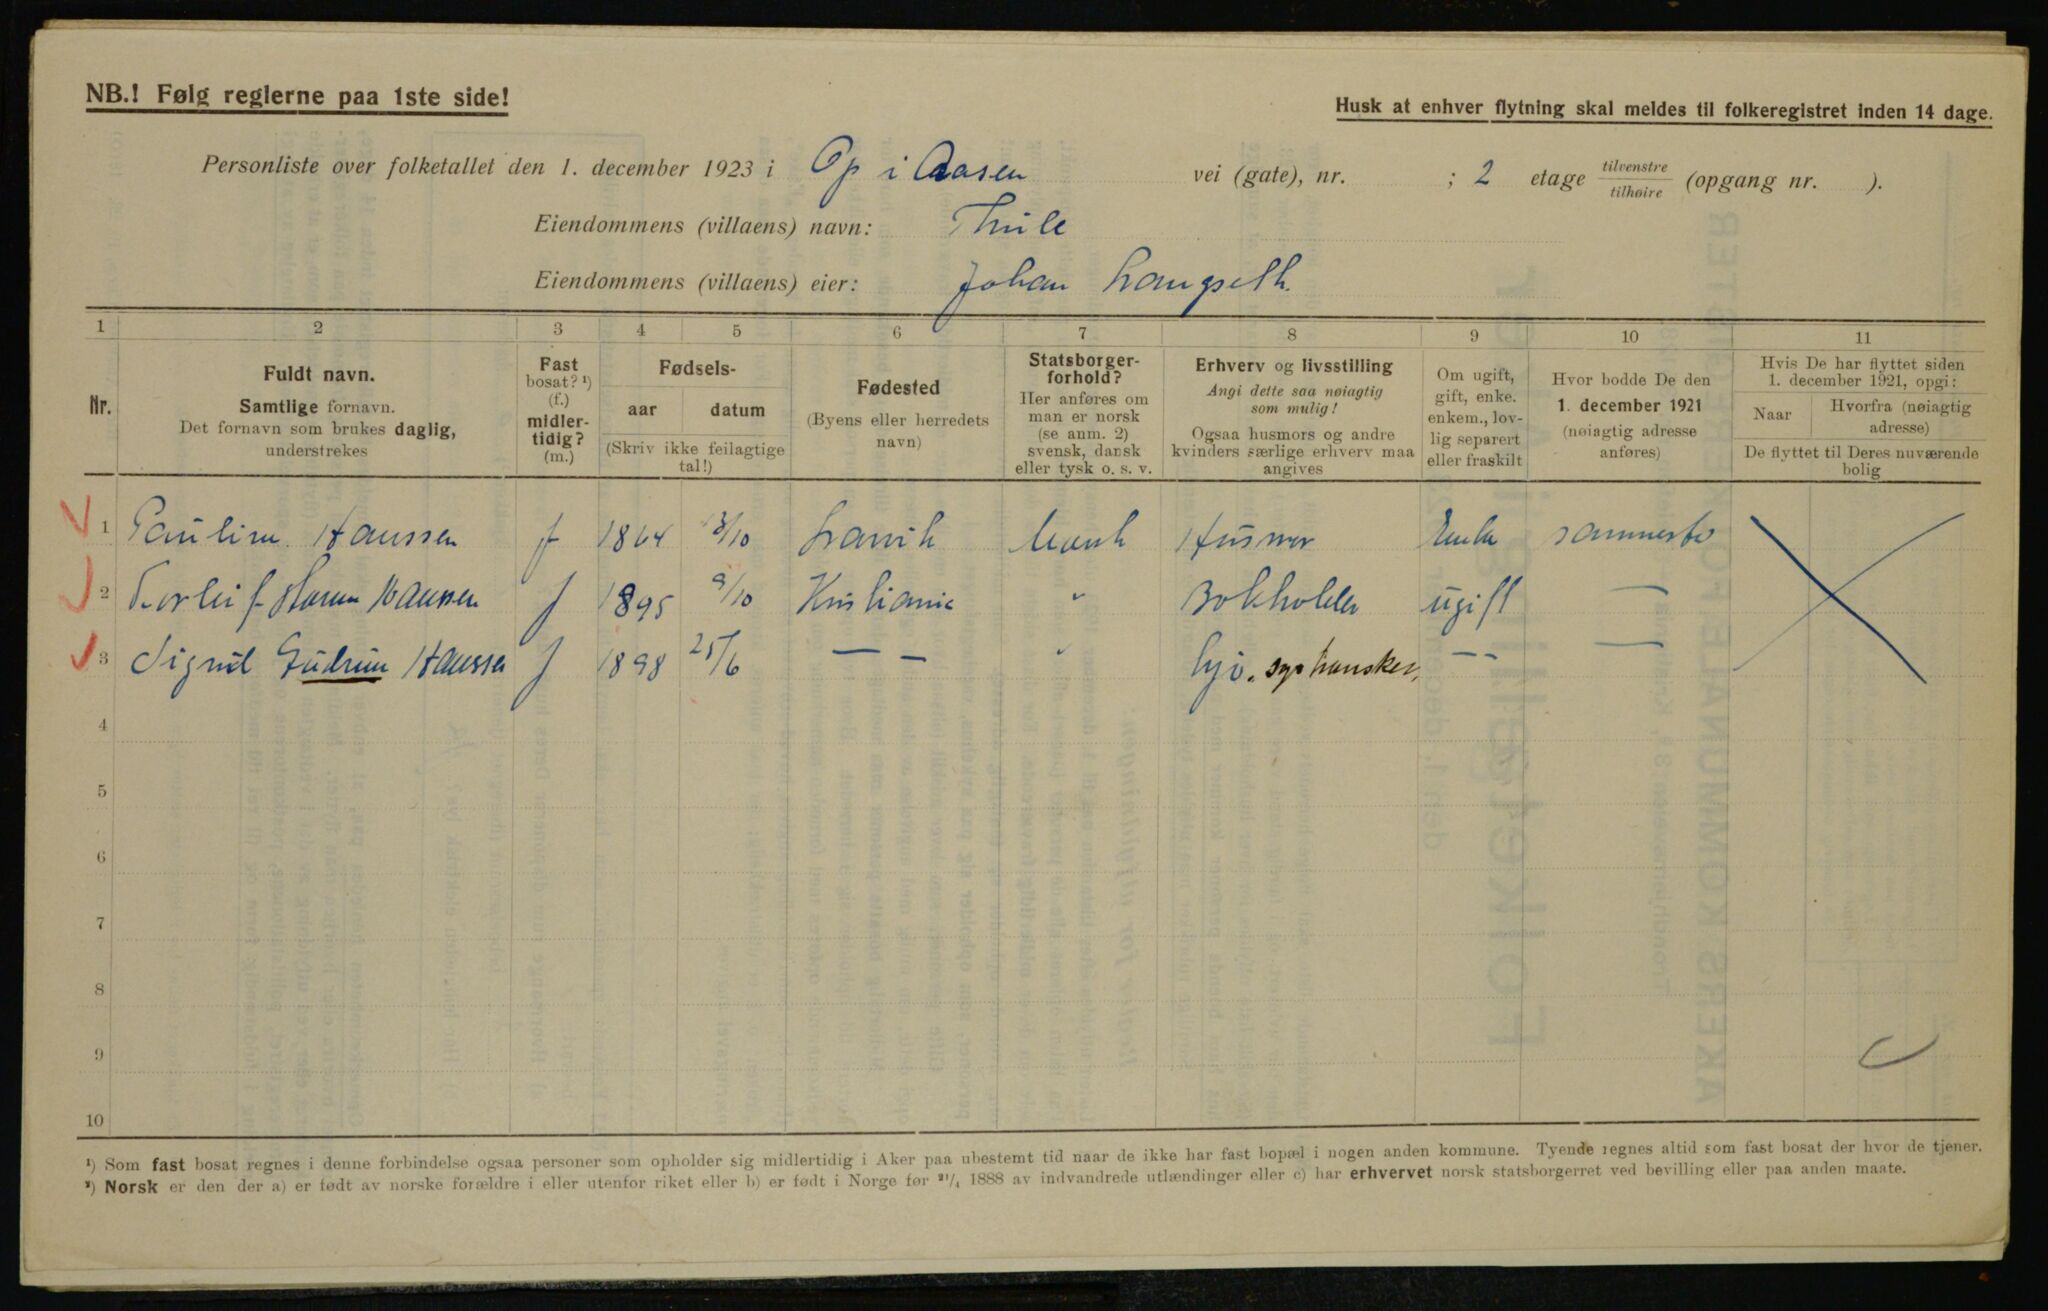 NB.! Følg reglerne paa 1ste side!
Husk at enhver flytning skal meldes til folkeregistret inden 14 dage.
Personliste over folketallet den 1. december 1923 i Op i Aasen vei (gate), nr. ; 2 etage tilvenstre/tilhøire (opgang nr. ).
Eiendommens (villaens) navn: Thule
Eiendommens (villaens) eier: Johan Langseth.
1 2 3 4 5 6 7 8 9 10 11
Nr.
Fuldt navn.
Samtlige fornavn.
Det fornavn som brukes daglig,
understrekes
Fast
bosat? ¹)
(f.)
midler-
tidig?
(m.)
Fødsels-
aar datum
(Skriv ikke feilagtige
tal!)
Fødested
(Byens eller herredets
navn)
Statsborger-
forhold?
Her anføres om
man er norsk
(se anm. 2)
svensk, dansk
eller tysk o. s. v.
Erhverv og livsstilling
Angi dette saa nøiagtig
som mulig!
Ogsaa husmors og andre
kvinders særlige erhverv maa
angives
Om ugift,
gift, enke.
enkem., lov-
lig separert
eller fraskilt
Hvor bodde De den
1. december 1921
(nøiagtig adresse
anføres)
Hvis De har flyttet siden
1. december 1921, opgi:
Naar
Hvorfra (nøiagtig
adresse)
De flyttet til Deres nuværende
bolig
1 Pauline Hanssen f 1864 13/10 Larvik Norsk Husmor Enke sammested
2 Torleif Hanssen f 1895 9/10 Kristiania " Bokholder ugift —
3 Sigrid Gudrun Hanssen f 1898 25/6 — — " hjv. syr hansker, -- —
4
5
6
7
8
9
10
¹) Som fast bosat regnes i denne forbindelse ogsaa personer som opholder sig midlertidig i Aker paa ubestemt tid naar de ikke har fast bopæl i nogen anden kommune. Tyende regnes altid som fast bosat der hvor de tjener.
²) Norsk er den der a) er født av norske forældre i eller utenfor riket eller b) er født i Norge før 21/4 1888 av indvandrede utlændinger eller c) har erhvervet norsk statsborgerret ved bevilling eller paa anden maate.